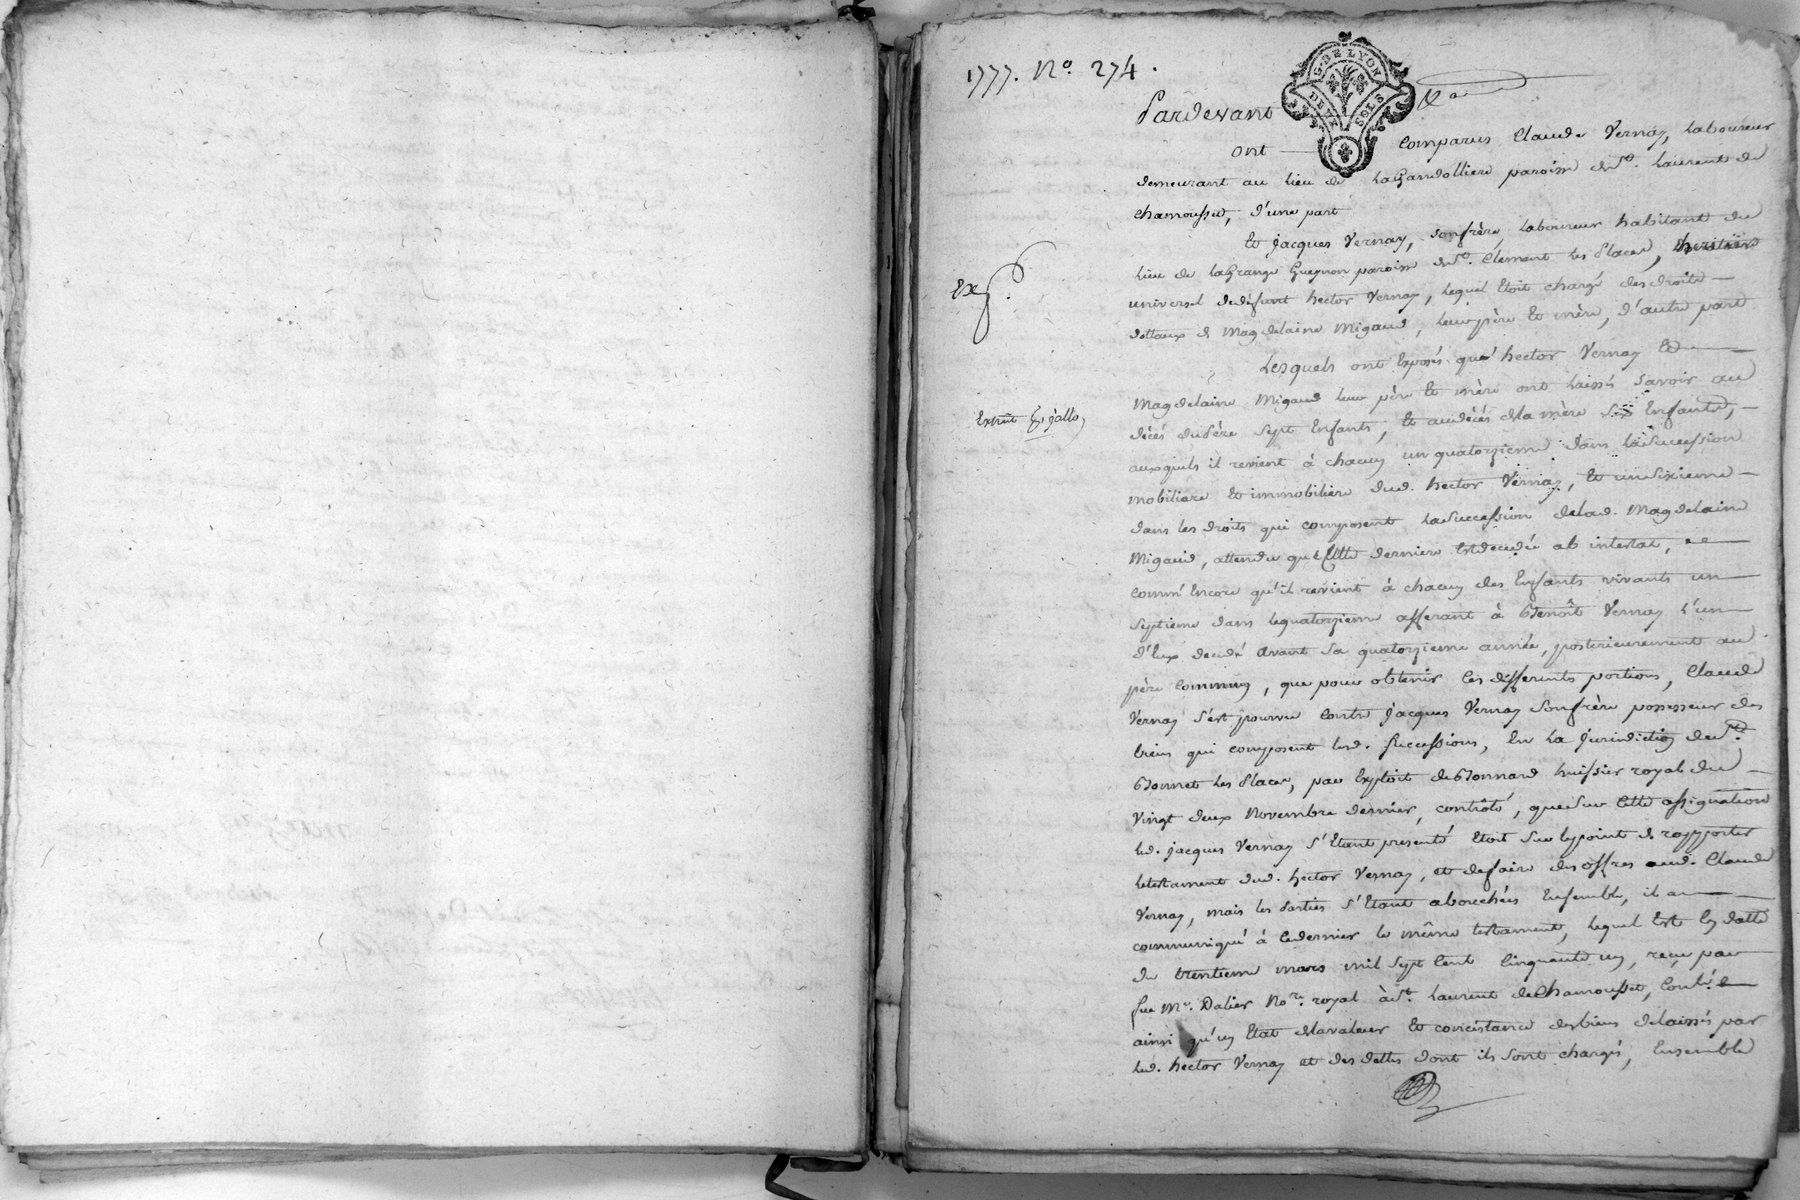 1777. No. 274.
G. DE LYON
DEUX SOLS
Pardevant
ont comparus Claude Vernay, Laboureur
demeurant au lieu de paroisse de St. Laurent de
chamousset, d'une part
Et jacques Vernay, son frère, Laboureur habitant du
Exp.
lieu de LaGrange Guegnon paroisse de St. Clement les Places, heritier
universel de defunt hector Vernay, lequel Etoit chargé des droits
dottaux de Magdelaine Migaud, leur père Et mère, d'autre part
Lesquels ont Exposés que hector Vernay Et
Magdelaine Migaud leur père Et mère ont laissés savoir au
Extrait
décés du Père Sept Enfants, Et au décés de la mère Six Enfants,
auxquels il revient à chacun un quatorzieme dans la Succession
mobiliare Et immobiliere dud. hector Vernay, Et un Sixieme
dans les droits qui composent la Succession de lad. Magdelaine
Migaud, attendu que Cette derniere Est decedée ab intestat,
comm' Encore qu'il revient à chacun des Enfants vivants un
Septieme dans le quatorzieme afferant à Benoît Vernay l'un
d'Eux decedé avant sa quatorzieme année, posterieurement au
père Commun, que pour obtenir Ces differents portions, Claude
Vernay s'est pourvu Contre jacques Vernay Son frère possesseur des
biens qui composent lesd. Successions, En la jurisdiction de St.
Bonnet les Places, par Exploit de Bonnard huissier royal du
vingt deux Novembre dernier, contrôlé, que Sur Cette assignation
led. jacques Vernay s'Etant presenté Etoit Sur le point de rapporter
le testament dud. hector Vernay, et de faire des offres aud. Claude
Vernay, mais les Parties s'Etant abouchées Ensemble, il a
communiqué à Ce dernier le même testament, lequel Est En datte
du trentieme mars mil Sept Cent Cinquante un, reçu par
feu Me. Dalier Nore. royal à St. Laurent de Chamousset, Contlé
ainsi qu'un Etat de la valeur Et concistance des biens delaissés par
led. hector Vernay et des dettes dont ils Sont chargés, Ensemble